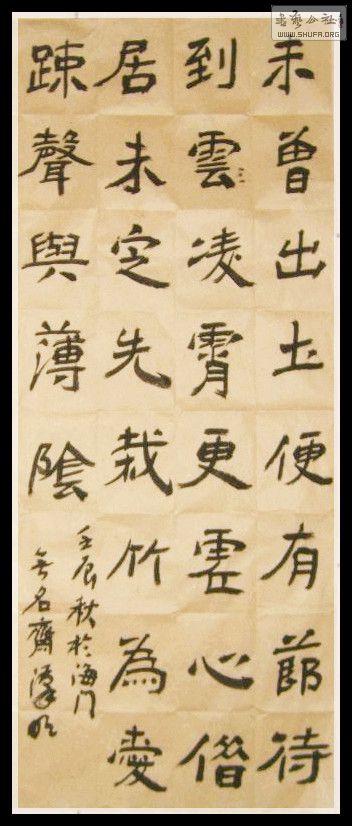 未曾出土便有節待
到雲凌霄更虛心僭
居未定先栽竹為愛
踈聲與薄陰
壬辰秋於海門
無名齋
书艺公社
WWW.SHUFA.ORG